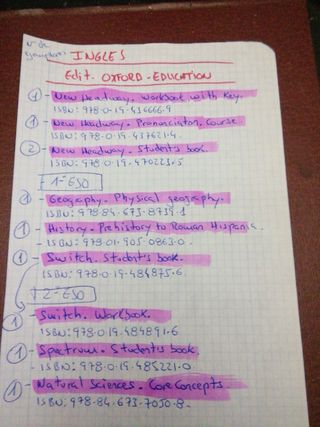 Nº de
ejemplares
INGLES
Edit. OXFORD-EDUCATION
1 - New Headway. Workbook with Key.
ISBN: 978-0-19-436666-9
1 - New Headway. Pronunciation, course.
ISBN: 978-0-19-437621-4.
2 - New Headway. Student's book.
ISBN: 978-0-19-470221-5
1º ESO
1 - Geography. Physical geography.
ISBN: 978-84-673-8739-1
1 - History. Prehistory to Roman Hispania.
ISBN: 978-01-905-0863-0
1 - Switch. Student's book.
ISBN: 978-0-19-484875-6
2º ESO
1 - Switch. Workbook.
ISBN: 978-0-19-484891-6
1 - Spectrum. Student's book
ISBN: 978-0-19-485221-0
1 - Natural Sciences. Core Concepts.
ISBN: 978-84-673-7050-8.